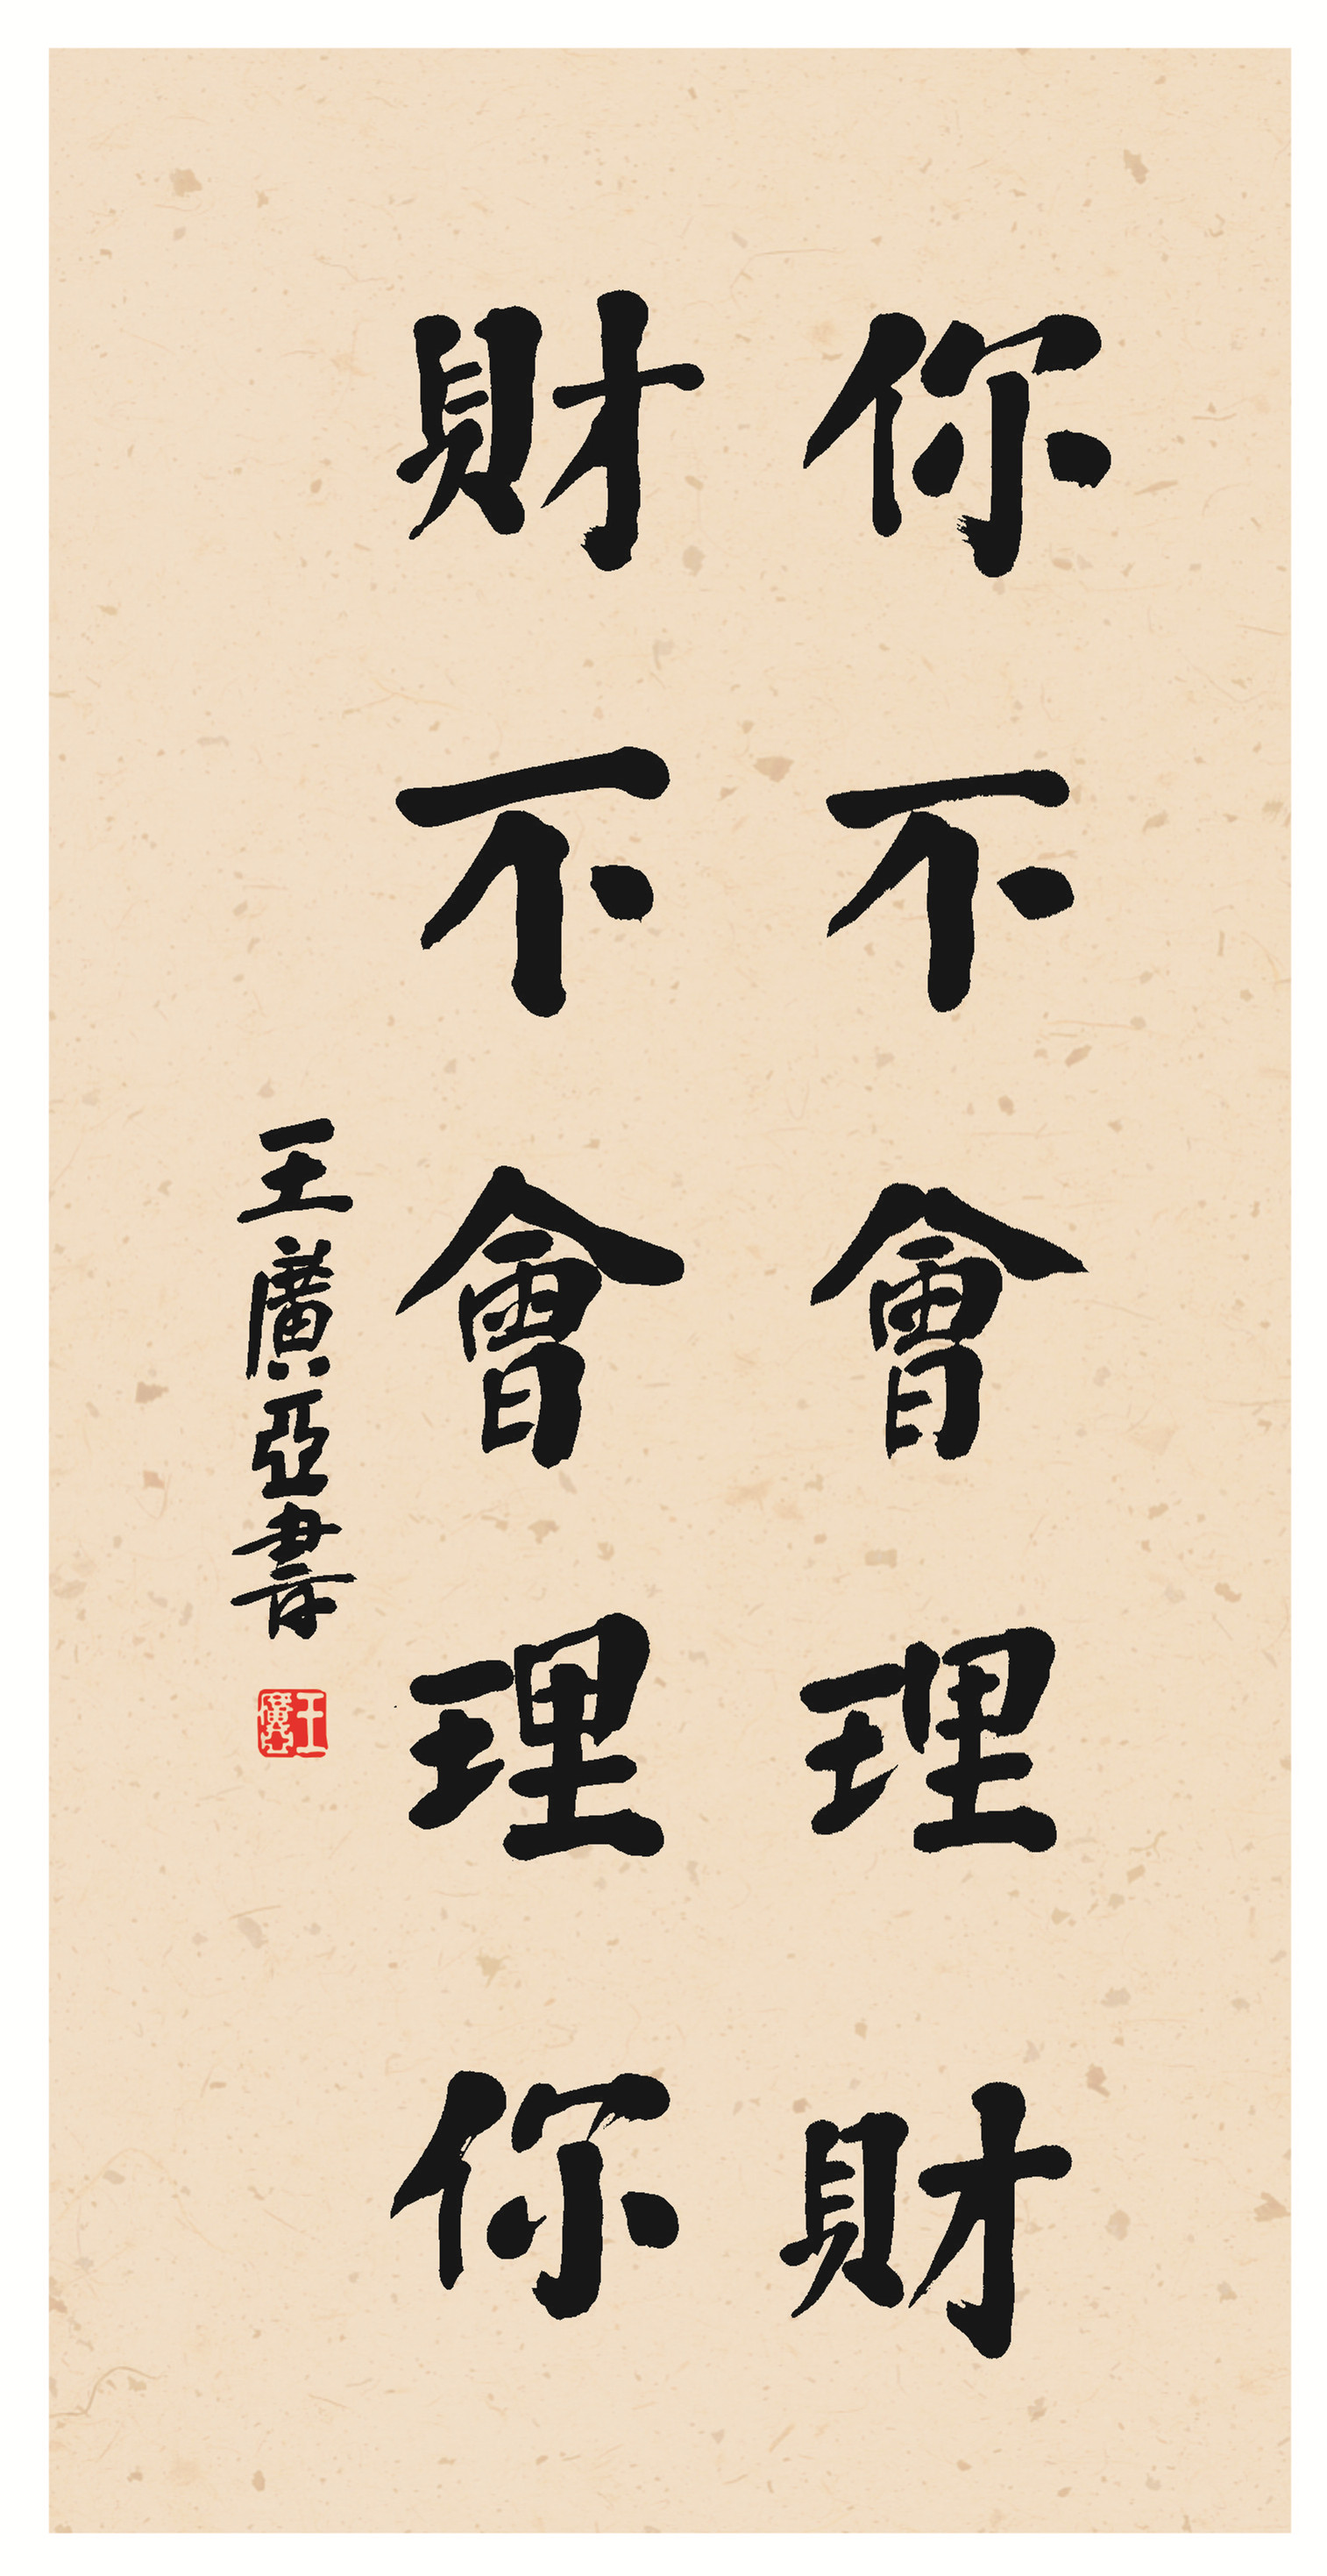 你不會理財
財不會理你
王廣亞書
王廣亞